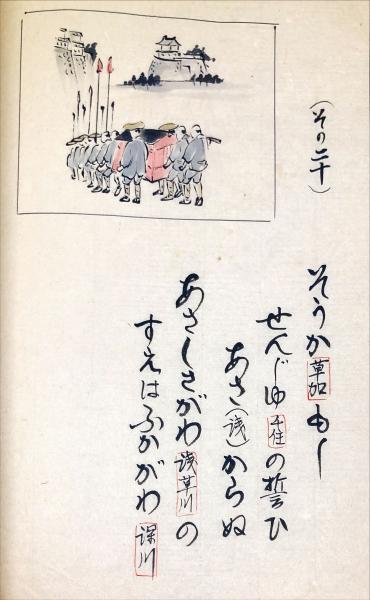 (その二十)
そうか草加もし
せんじゆ千住の誓ひ
あさ(浅)からぬ
あさくさがわ浅草川の
すえはふかがわ深川